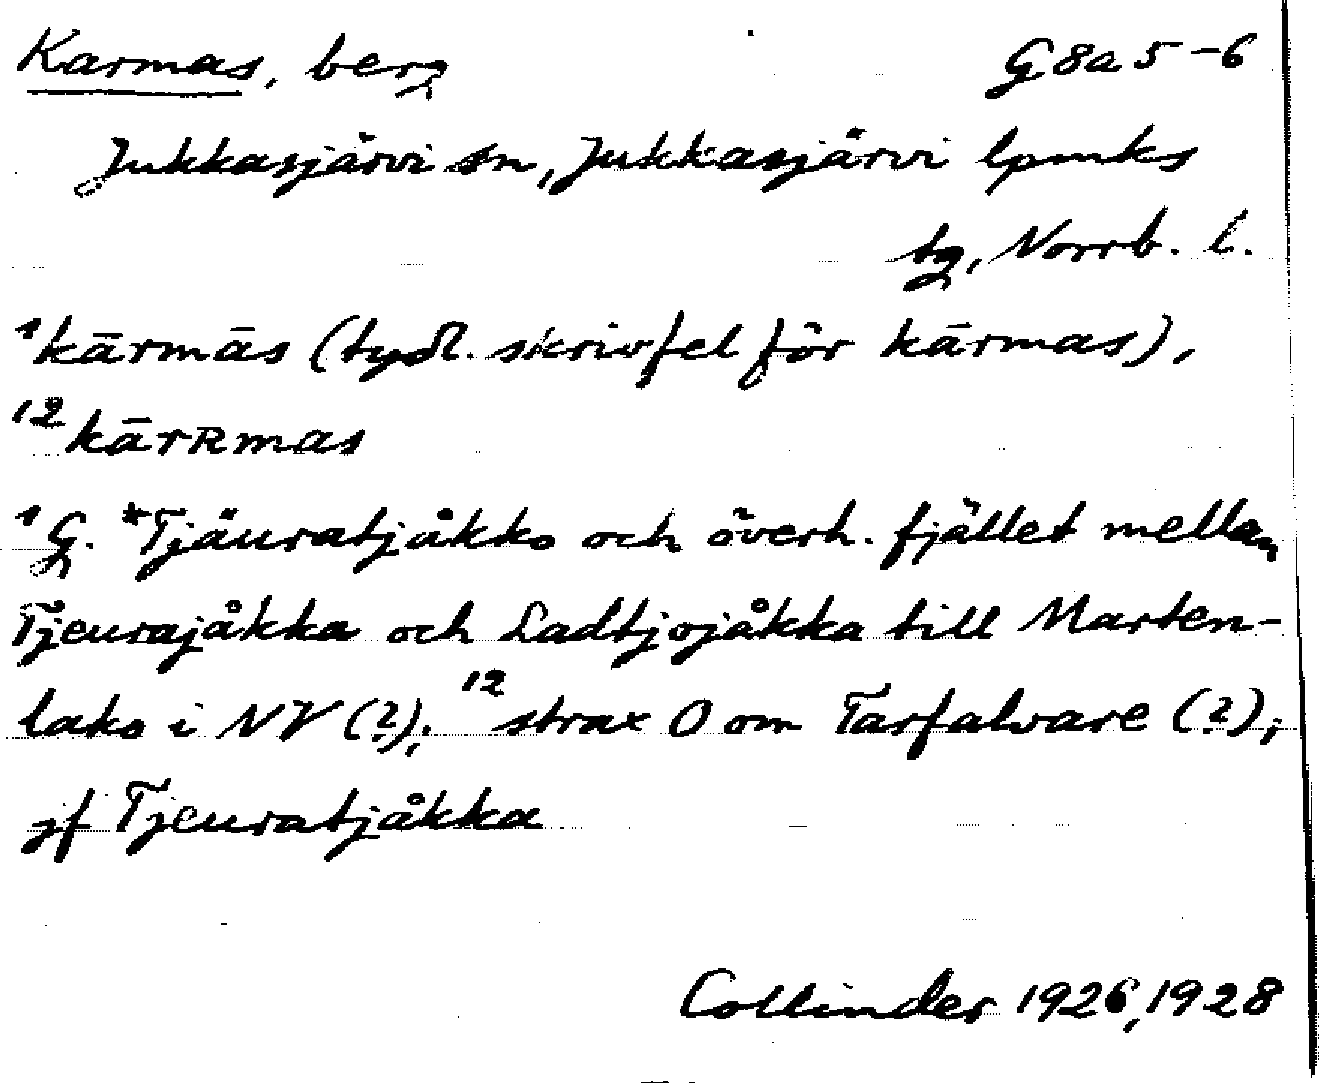 Karmas, berg G 8a 5-6
Jukkasjärvi sn, Jukkasjärvi lpmks
tg, Norrb. l.
¹kārmās (tydl. skrivfel för kārmas),
¹²kārRmas
¹G. *Tjäuratjåkko och överh. fjället mellan
Tjeurajåkka och Ladtjojåkka till Marten-
lako i NV (?); ¹²strax O om Tarfalvare (?);
jf Tjeuratjåkka
Collinder 1926, 1928